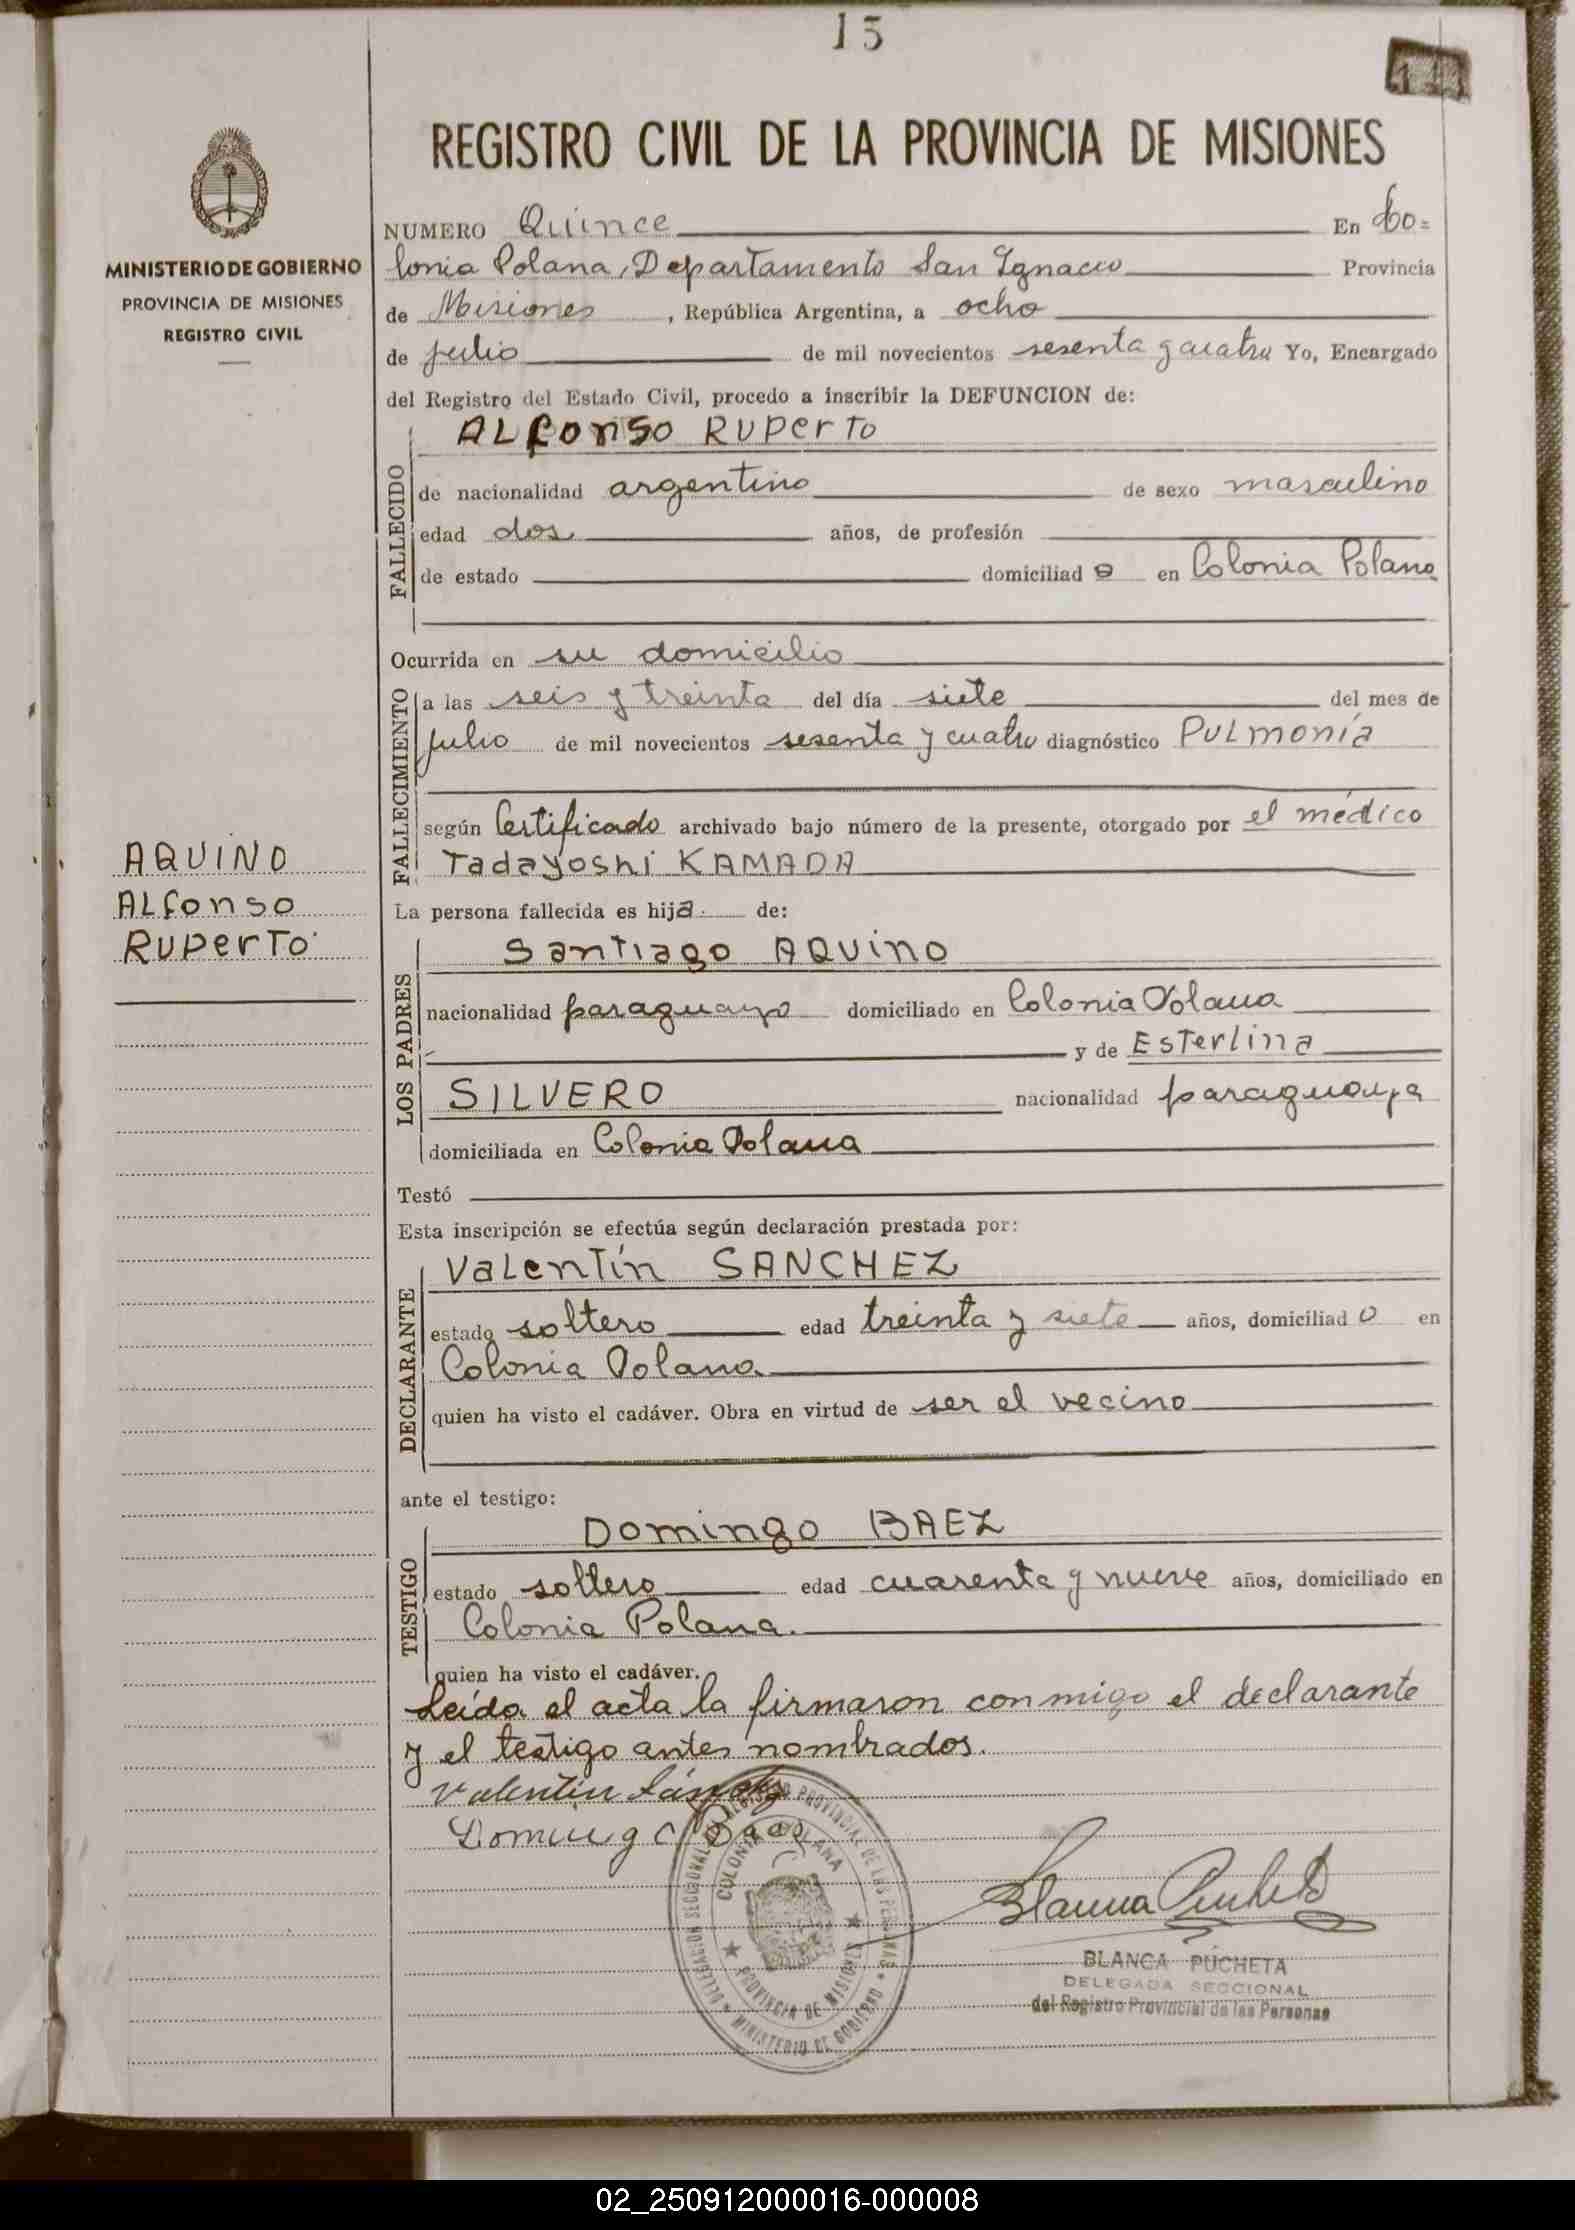 15
14
REGISTRO CIVIL DE LA PROVINCIA DE MISIONES
MINISTERIO DE GOBIERNO
PROVINCIA DE MISIONES
REGISTRO CIVIL
NUMERO Quince En Co=
lonia Polana, Departamento San Ignacio Provincia
de Misiones, República Argentina, a ocho
de julio de mil novecientos sesenta y cuatro Yo, Encargado
del Registro del Estado Civil, procedo a inscribir la DEFUNCION de:
ALfonso Ruperto
FALLECIDO
de nacionalidad argentino de sexo masculino
edad dos años, de profesión
de estado domiciliado en Colonia Polana
Ocurrida en su domicilio
FALLECIMIENTO
a las seis y treinta del día siete del mes de
julio de mil novecientos sesenta y cuatro diagnóstico PULmonía
según Certificado archivado bajo número de la presente, otorgado por el médico
Tadayoshi KAMADA
AQUINO
ALfonso
RuperTo
La persona fallecida es hija de:
LOS PADRES
Santiago AQUINO
nacionalidad paraguayo domiciliado en Colonia Polana
y de Esterlina
SILVERO nacionalidad paraguaya
domiciliada en Colonia Polana
Testó
Esta inscripción se efectúa según declaración prestada por:
DECLARANTE
Valentín SANCHEZ
estado soltero edad treinta y siete años, domiciliado en
Colonia Polana
quien ha visto el cadáver. Obra en virtud de ser el vecino
ante el testigo:
TESTIGO
Domingo BAEZ
estado soltero edad cuarenta y nueve años, domiciliado en
Colonia Polana.
quien ha visto el cadáver.
Leída el acta la firmaron conmigo el declarante
y el testigo antes nombrados.
Valentín Sánchez
Domingo Baez
DELEGACION SECCIONAL DEL REGISTRO PROVINCIAL DE LAS PERSONAS
COLONIA POLANA
PROVINCIA DE MISIONES
MINISTERIO DE GOBIERNO
Blanca Pucheta
BLANCA PUCHETA
DELEGADA SECCIONAL
del Registro Provincial de las Personas
02_250912000016-000008